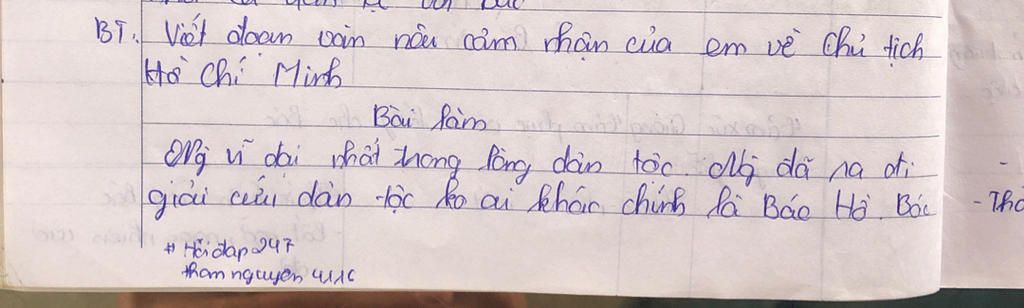 BT. Viết đoạn văn nêu cảm nhận của em về chủ tịch
Hồ Chí Minh
Bài làm
vĩ đại nhất trong lòng dân tộc. đã ra đi
giải cứu dân tộc ko ai khác chính là Bác Hồ. Bác
- Thơ
# Hỏi đáp 247
tham nguyen 4116